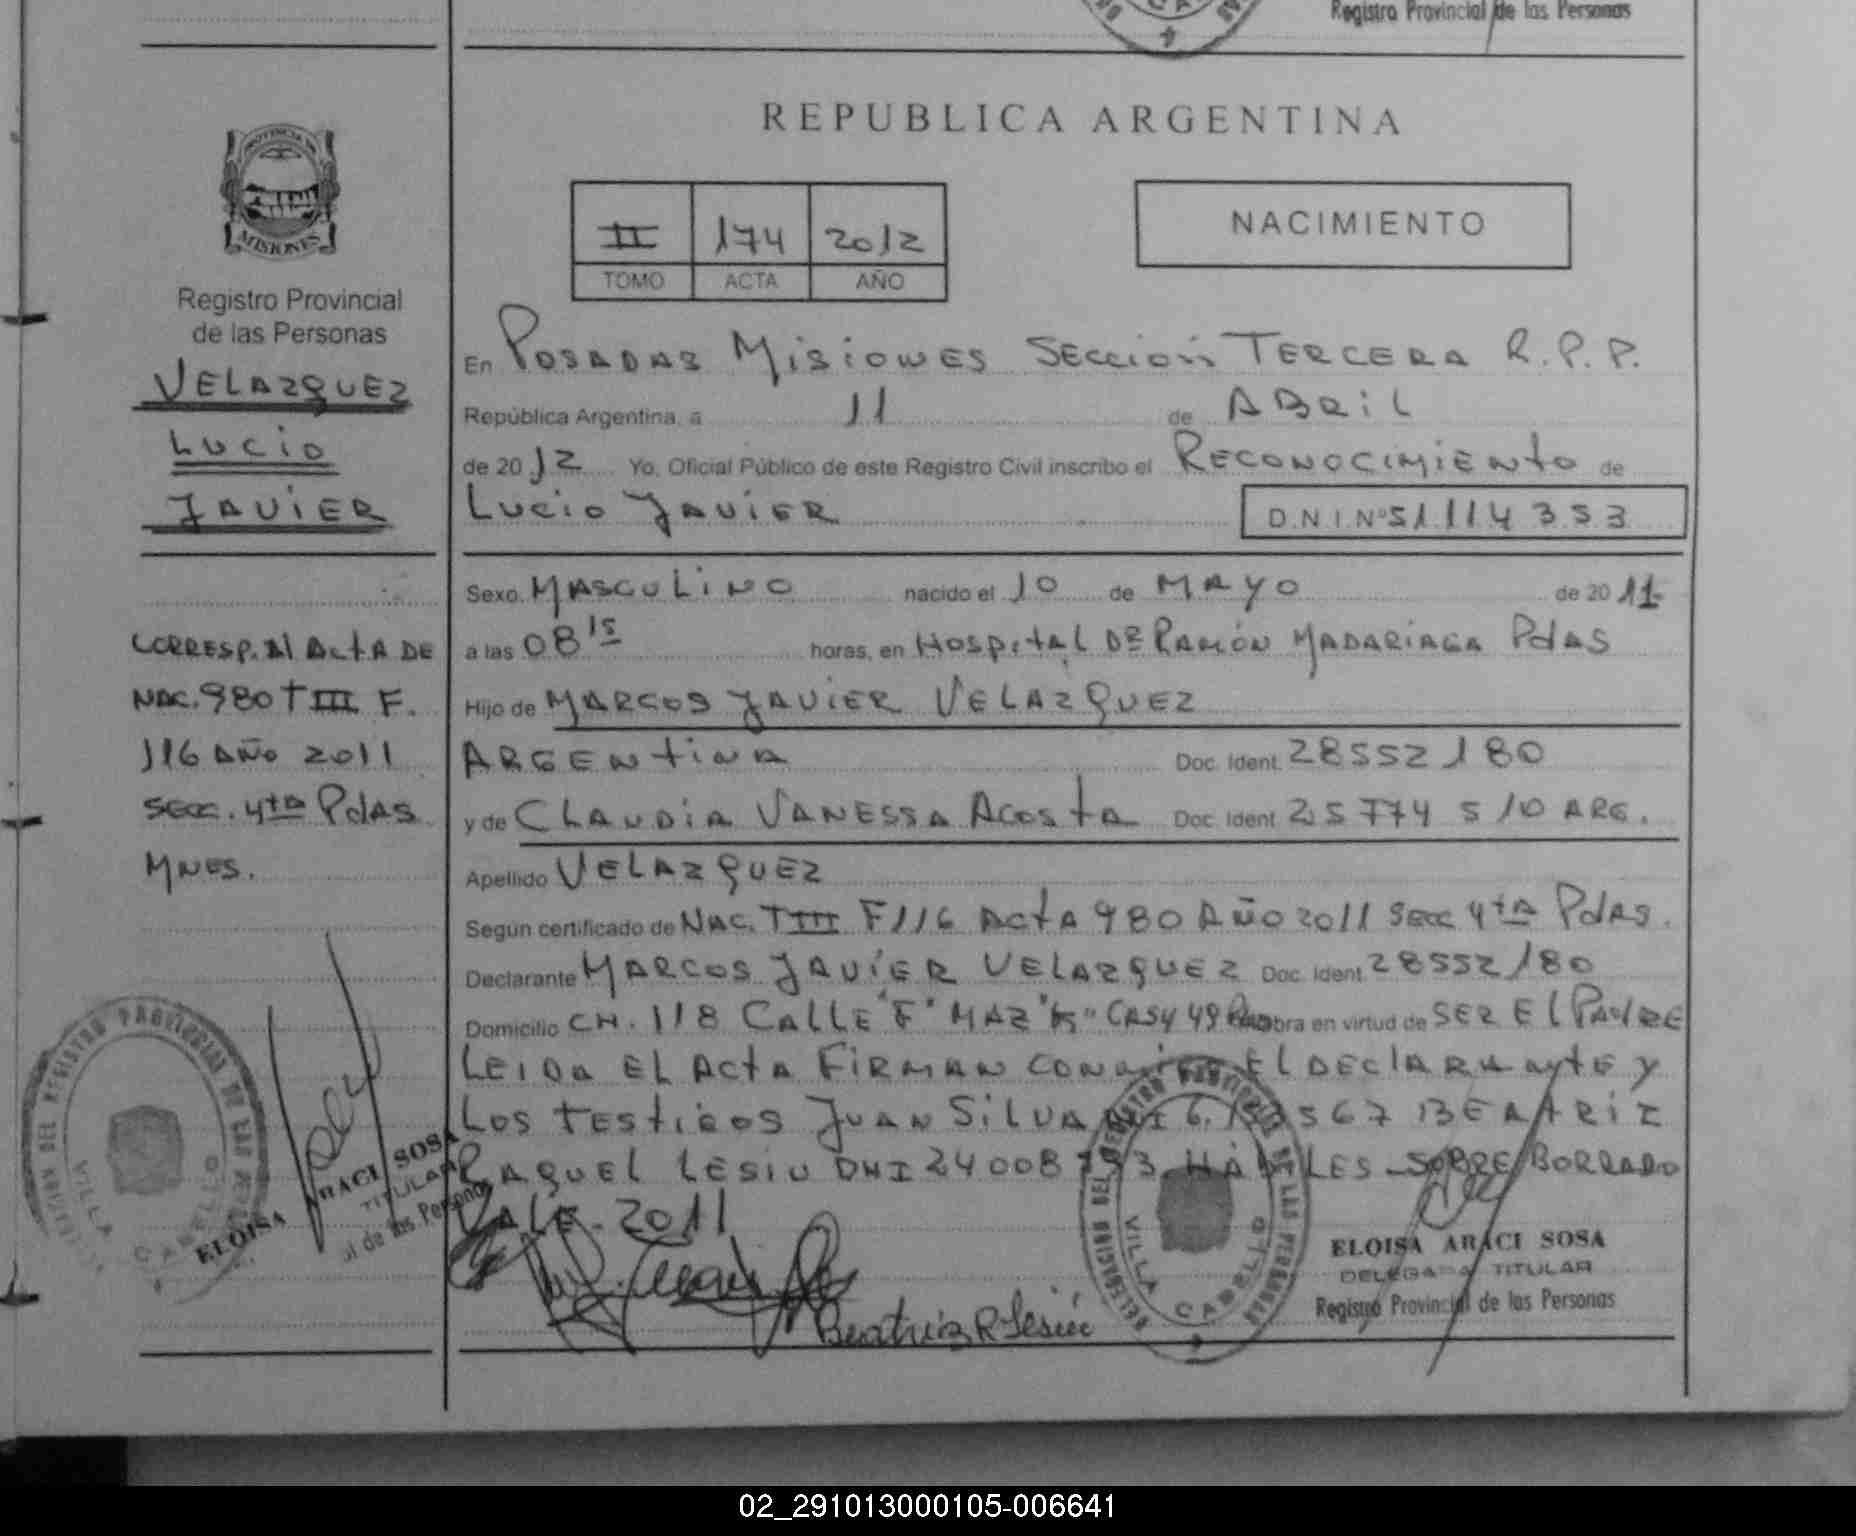 Registro Provincial de las Personas
REPUBLICA ARGENTINA
PROVINCIA DE
MISIONES
Registro Provincial
de las Personas
VELAZQUEZ
LUCIO
JAVIER
CORRESP. Al ActA DE
NAC. 980 T III F.
116 AÑO 2011
SECC. 4ta PdAS
MNES.
II 174 2012
TOMO ACTA AÑO
NACIMIENTO
En POSADAS MISIONES SECCIÓN TERCERA R.P.P.
República Argentina, a 11 de ABRIL
de 2012 Yo, Oficial Público de este Registro Civil inscribo el RECONOCIMIENTO de
LUCIO JAVIER D.N.I.Nº 51114353
Sexo MASCULINO nacido el 10 de MAYO de 2011
a las 08 15 horas, en HOSPITAL DR RAMÓN MADARIAGA PdAS
Hijo de MARCOS JAVIER VELAZQUEZ
ARGENTINA Doc. Ident. 28552180
y de CLAUDIA VANESSA ACOSTA Doc. Ident. 25774510 ARG.
Apellido VELAZQUEZ
Según certificado de NAC. T III F 116 ACTA 980 AÑO 2011 SECC 4ta PdAS.
Declarante MARCOS JAVIER VELAZQUEZ Doc. Ident. 28552180
Domicilio CH. 118 CALLE "F" MAZ CASA 49 obra en virtud de SER El PADRE
LEIDA EL ACTA FIRMAN El DECLARANTE y
LOS TESTIGOS JUAN SILVA 567 BEATRIZ
RAQUEL LESIU DNI 24008 3 HÁBILES - SOBRE BORRADO
VALE - 2011
Beatriz R Lesiu
DELEGACION DEL REGISTRO PROVINCIAL DE LAS PERSONAS
VILLA CABELLO
ELOISA ARACI SOSA
DELEGADA TITULAR
Registro Provincial de las Personas
DEL REGISTRO PROVINCIAL DE LAS
VILLA CABELLO
ELOISA ARACI SOSA
TITULAR
de las Personas
02_291013000105-006641